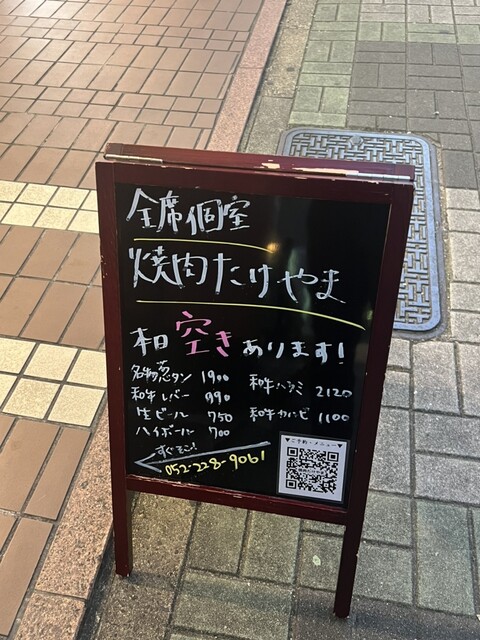 全席個室
焼肉たけやま
本日空きあります!
名物葱タン 1900
和牛レバー 990
生ビール 750
ハイボール 700
和牛ハラミ 2120
和牛カルビ 1100
すぐそこ!
052-228-9061
▼ご予約・メニュー▼